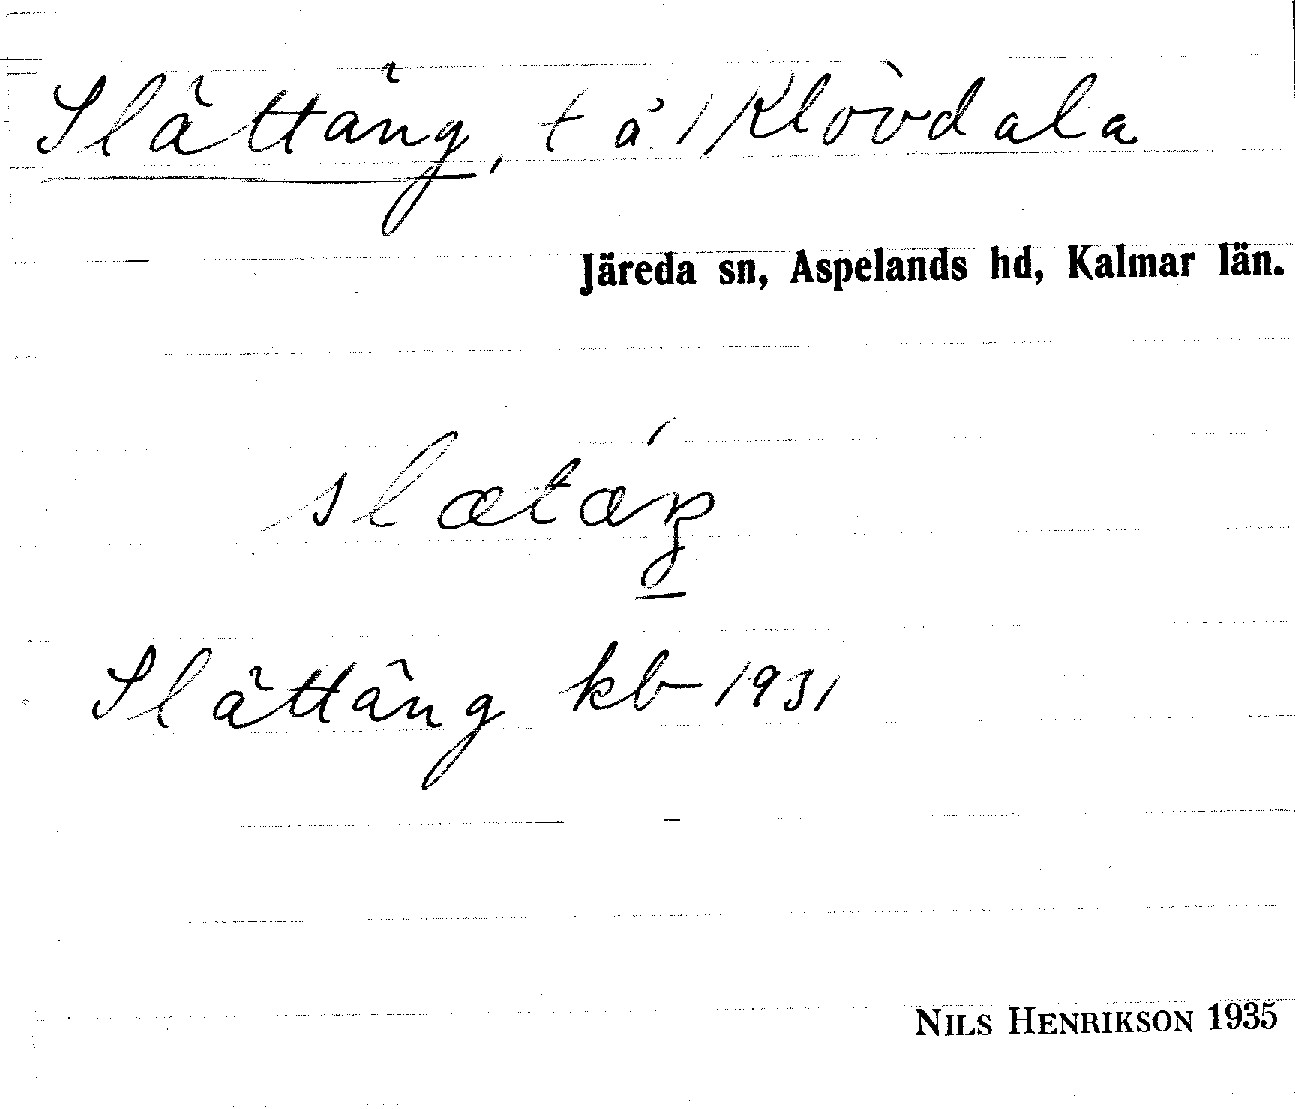 Slättäng, t å 1 Klövdala
Järeda sn, Aspelands hd, Kalmar län.
slætæŋ
Slättäng kb 1931
NILS HENRIKSON 1935